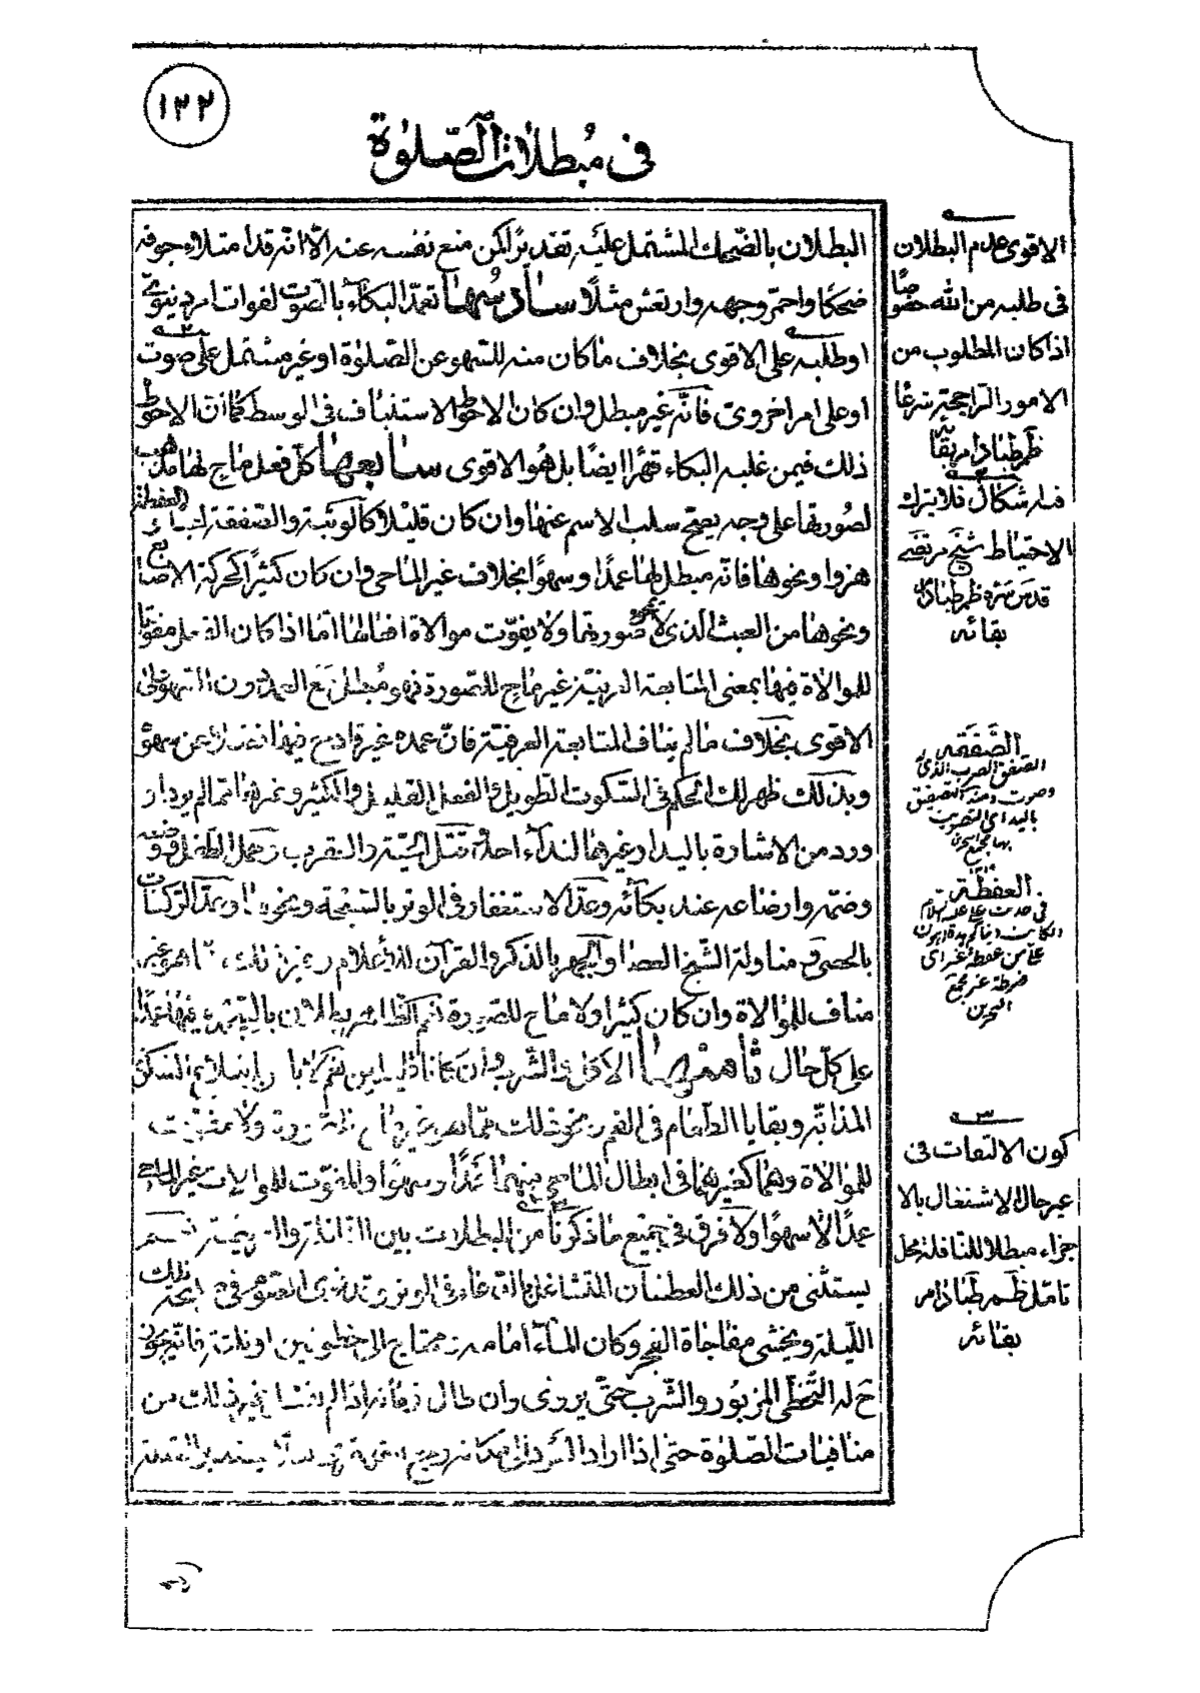 ١٣٢
في مبطلات الصّلوة
البطلان بالضّحك المشتمل عليه تقديرًا لكن منع نفسه عنه الّا انّه قد امتلاء جوفه
ضحكًا واحمرّ وجهه وارتعش مثلًا سادسُها تعمّد البكآء بالصّوت لفوات امر دنيويّ
او طلبه على الاقوى بخلاف ما كان منه للسّهو عن الصّلوة او غير مشتمل على صوت
او على امر اخرويّ فانّه غير مبطل وان كان الاحوط الاستيناف في الوسط كما انّ الاحوط
ذلك فيمن غلبه البكاء قهرًا ايضًا بل هُو الاقوى سابعها كلّ فعل ماح لها مذهب
لصُورتها على وجه يصحّ سلب الاسم عنها وان كان قليلًا كالوثبة والصّفقة لعبًا والعفطة
هزوا ونحوها فانّه مبطل لها عمدًا وسهوًا بخلاف غير الماحي وان كان كثيرًا كحركة الاصابع
ونحوها من العبث الذي لا يمحو صُورتها ولا يفوّت موالاة افعالها امّا اذا كان الفعل مفوّتًا
للموالاة فيها بمعنى المتابعة العرفيّة غير ماح للصّورة فهو مُبطل مَع العمد دون السّهو على
الاقوى بخلاف ما لم يناف المتابعة العرفيّة فانّ عمده غير قادح فيها فضلا عن سهوه
وبذلك ظهر لك الحكم في السّكوت الطّويل والفعل القليل والكثير وغيرها ممّا لم يرد او
ورد من الاشارة باليد او غيرها لنداء احد وقتل الحيّة والعقرب وحمل الطّفل ووضعه
وضمّه وارضاعه عند بكآئه وعدّ الاستغفار في الوتر بالسّبحة ونحوها وعدّ الرّكعات
بالحصى ومناولة الشّيخ العصا والجهر بالذكر والقرآن للاعلام وغير ذلك ممّا هو غير
مناف للموالاة وان كان كثيرا ولا ماح للصّورة نعم الظاهر بطلان
على كلّ حال ثامنها الاكل والشّرب وان كانا قليلين نعم لا باس بابتلاع السّكّر
المذابّ وبقايا الطّعام في الفم ونحو ذلك ممّا هو غير ماح للصّورة ولا مفوّت
للموالاة وهما كغيرهما في ابطال الماحي منهما عمدًا وسهوًا والمفوّت للموالات غير الماحي
عمدًا لا سهوًا ولا فرق في جميع ما ذكرنا من البطلات بين النّافلة والفريضة نعم
يستثنى من ذلك العطشان المتشاغل بالدّعاء في الوتر وقد نوى الصّوم في صبيحة تلك
اللّيلة ويخشى مفاجاة الفجر وكان المآء امامه محتاج الى خطوتين او ثلثة فانّه يجوز
ح له التّخطّي المزبُور والشّرب حتّى يروى وان طال زمانه اذا لم يفعل غير ذلك من
منافيات الصّلوة حتى اذا اراد العود الى مكانه رجع القهقرى
الاقوى عدم البطلان
في طلبه من الله خصوصًا
اذا كان المطلوب من
الامور الرّاجحة شرعًا
ظم طبا دام بقآ
٢
فيه اشكال فلا يترك
الاحتياط شيخ مرتضى
قدس سره ظم طبا دام
بقائه
الصّفقة
الصفق الضرب الذي له
صوت ومنه التصفيق
باليد اي التصويت
بها مجمع البحرين
العفطة
في حديث علي عليه السلام
لكانت دنياكم هذه اهون
عليّ من عفطة عنز اي
ضرطة عنز مجمع
البحرين
٣
كون الالتفات في
غير حال الاشتغال بالا
جزاء مبطلا للنافلة محل
تامّل ظم طبا دام
بقائه